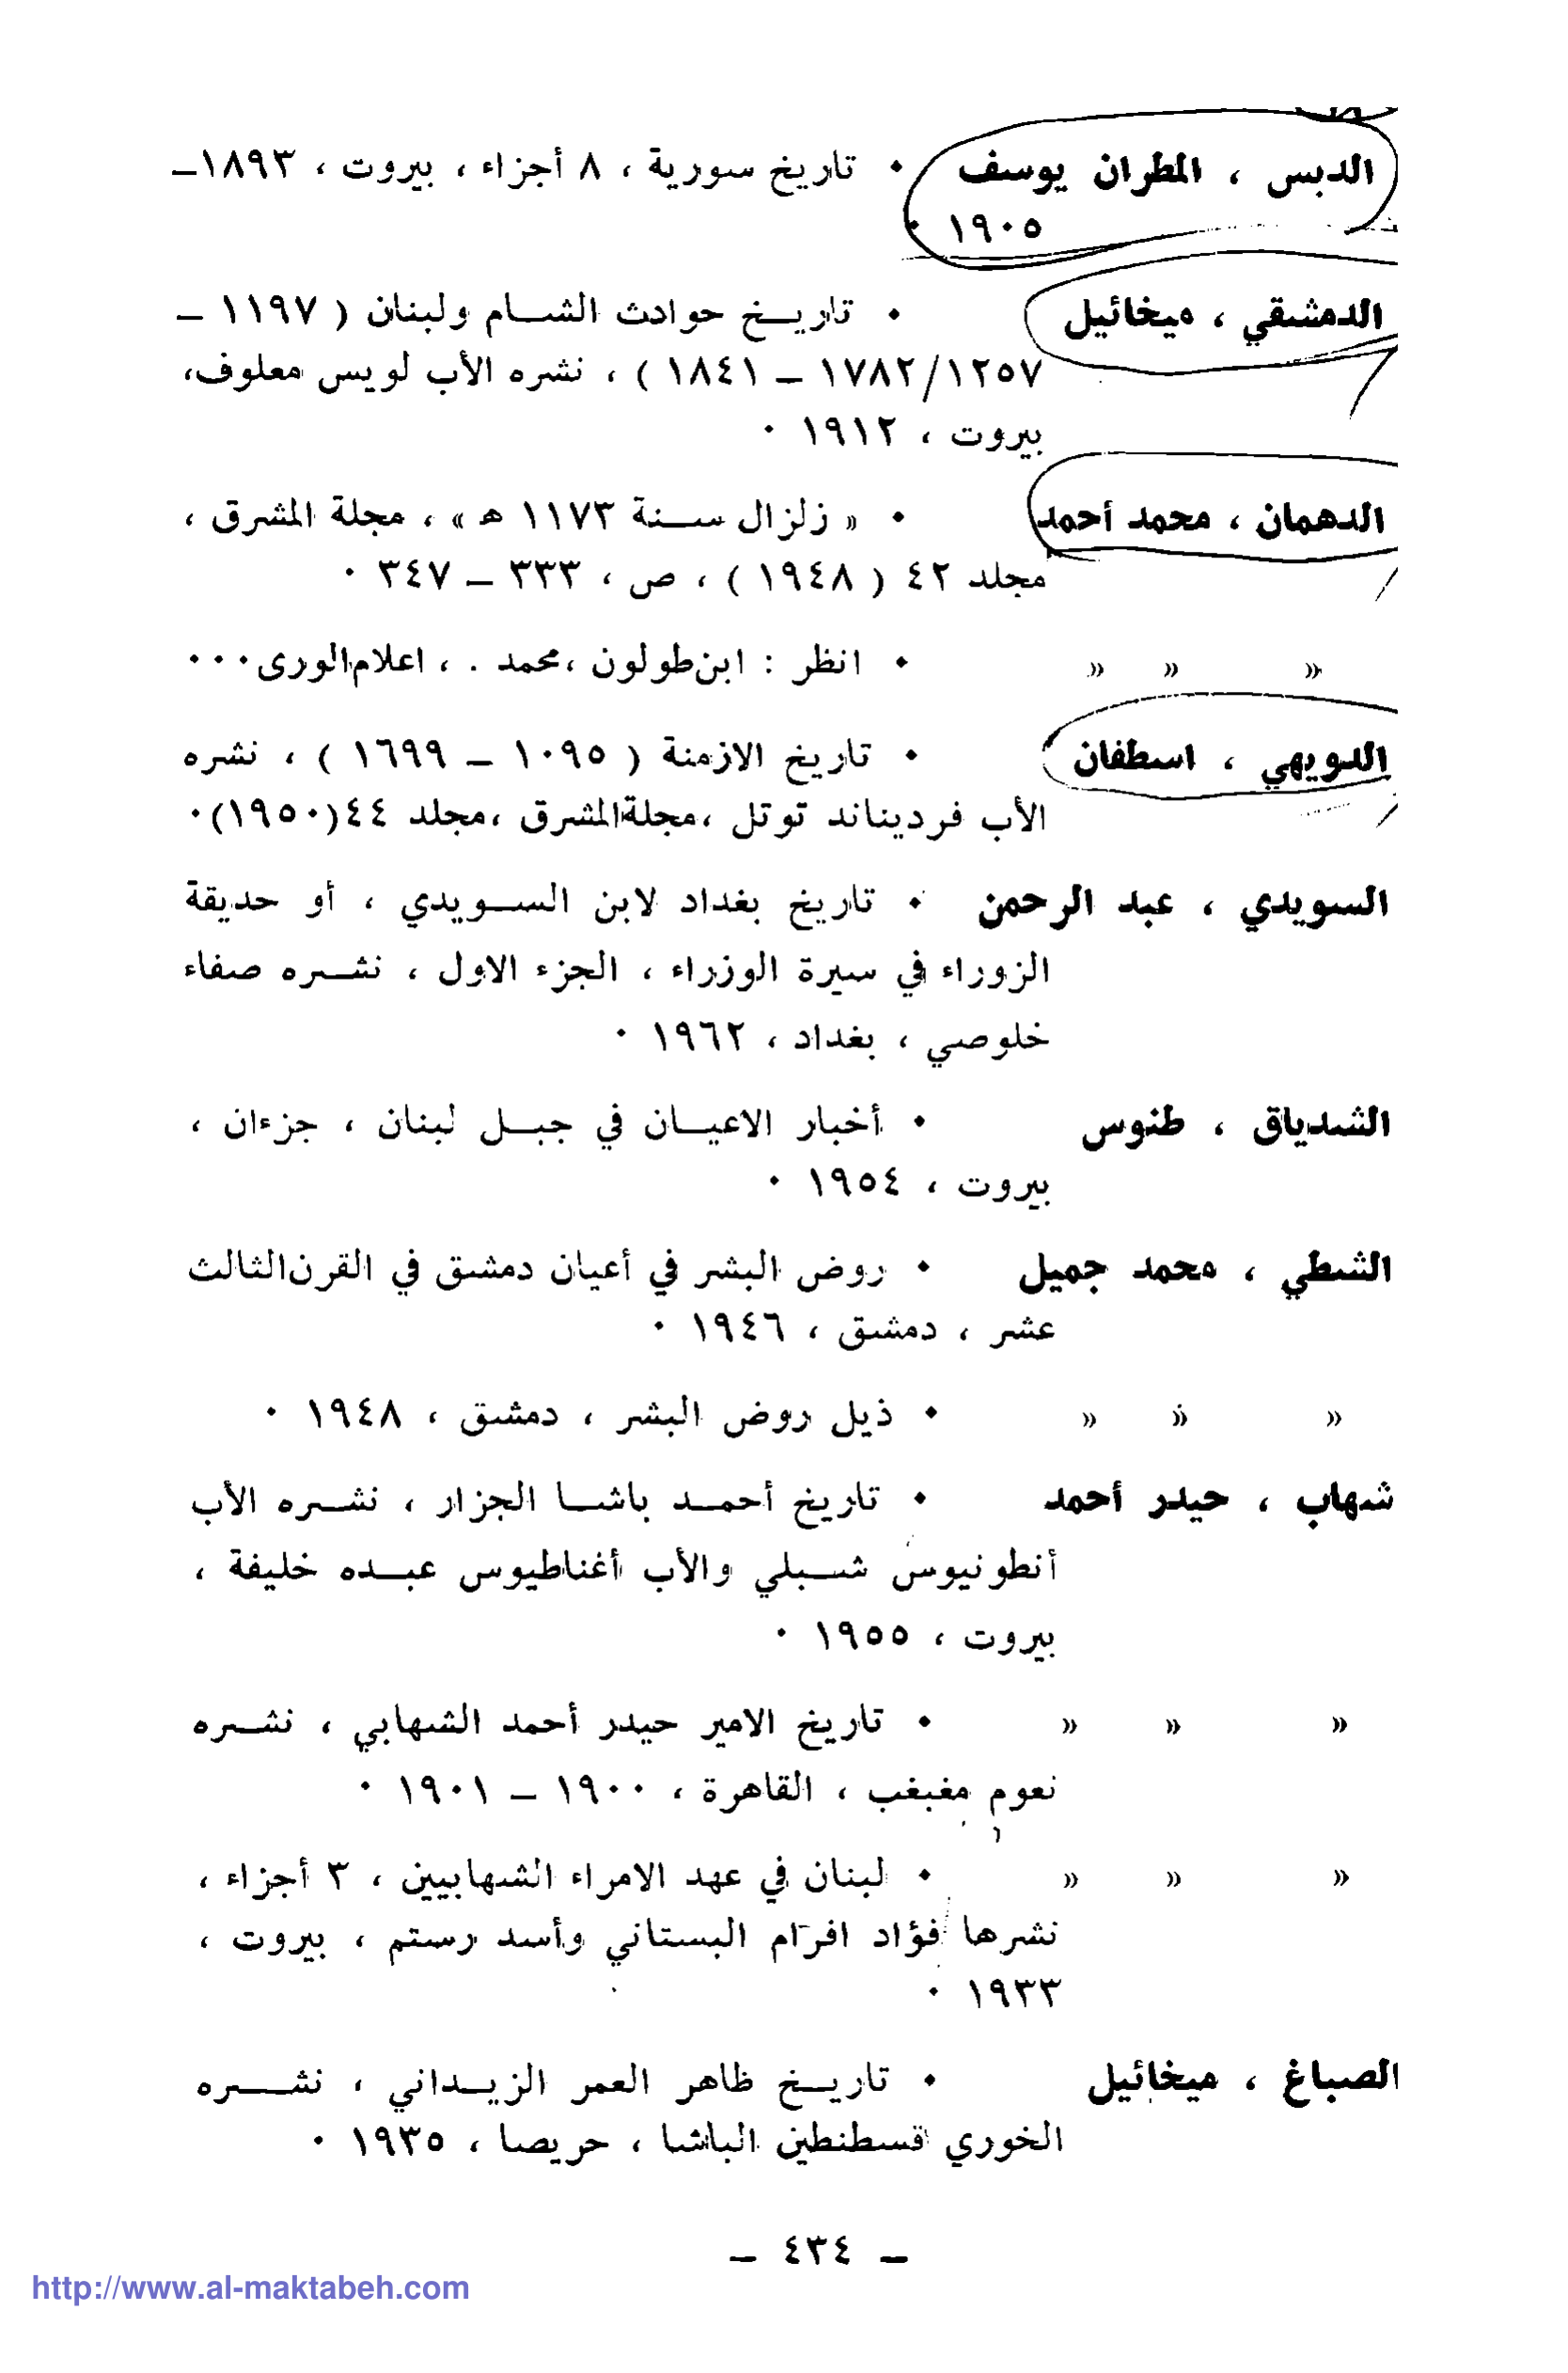 الدبس ، المطران يوسف ٠ تاريخ سورية ، ٨ أجزاء ، بيروت ، ١٨٩٣–
١٩٠٥ ٠
الدمشقي ، ميخائيل ٠ تاريخ حوادث الشام ولبنان ( ١١٩٧ –
١٢٥٧/١٧٨٢ – ١٨٤١ ) ، نشره الأب لويس معلوف،
بيروت ، ١٩١٢ ٠
الدهمان ، محمد أحمد ٠ « زلزال سنة ١١٧٣ هـ » ، مجلة المشرق ،
مجلد ٤٢ ( ١٩٤٨ ) ، ص ، ٣٣٣ – ٣٤٧ ٠
» » » ٠ انظر : ابن طولون ،محمد . ، اعلام الورى٠٠٠
الدويهي ، اسطفان ٠ تاريخ الازمنة ( ١٠٩٥ – ١٦٩٩ ) ، نشره
الأب فرديناند توتل ،مجلة المشرق ،مجلد ٤٤(١٩٥٠)٠
السويدي ، عبد الرحمن ٠ تاريخ بغداد لابن السويدي ، أو حديقة
الزوراء في سيرة الوزراء ، الجزء الاول ، نشره صفاء
خلوصي ، بغداد ، ١٩٦٢ ٠
الشدياق ، طنوس ٠ أخبار الاعيان في جبل لبنان ، جزءان ،
بيروت ، ١٩٥٤ ٠
الشطي ، محمد جميل ٠ روض البشر في أعيان دمشق في القرن الثالث
عشر ، دمشق ، ١٩٤٦ ٠
» » » ٠ ذيل روض البشر ، دمشق ، ١٩٤٨ ٠
شهاب ، حيدر أحمد ٠ تاريخ أحمد باشا الجزار ، نشره الأب
أنطونيوس شبلي والأب أغناطيوس عبده خليفة ،
بيروت ، ١٩٥٥ ٠
» » » ٠ تاريخ الامير حيدر أحمد الشهابي ، نشره
نعوم مغبغب ، القاهرة ، ١٩٠٠ – ١٩٠١ ٠
» » » ٠ لبنان في عهد الامراء الشهابيين ، ٣ أجزاء ،
نشرها فؤاد افرام البستاني وأسد رستم ، بيروت ،
١٩٣٣ ٠
الصباغ ، ميخائيل ٠ تاريخ ظاهر العمر الزيداني ، نشره
الخوري قسطنطين الباشا ، حريصا ، ١٩٣٥ ٠
– ٤٣٤ –
http://www.al-maktabeh.com